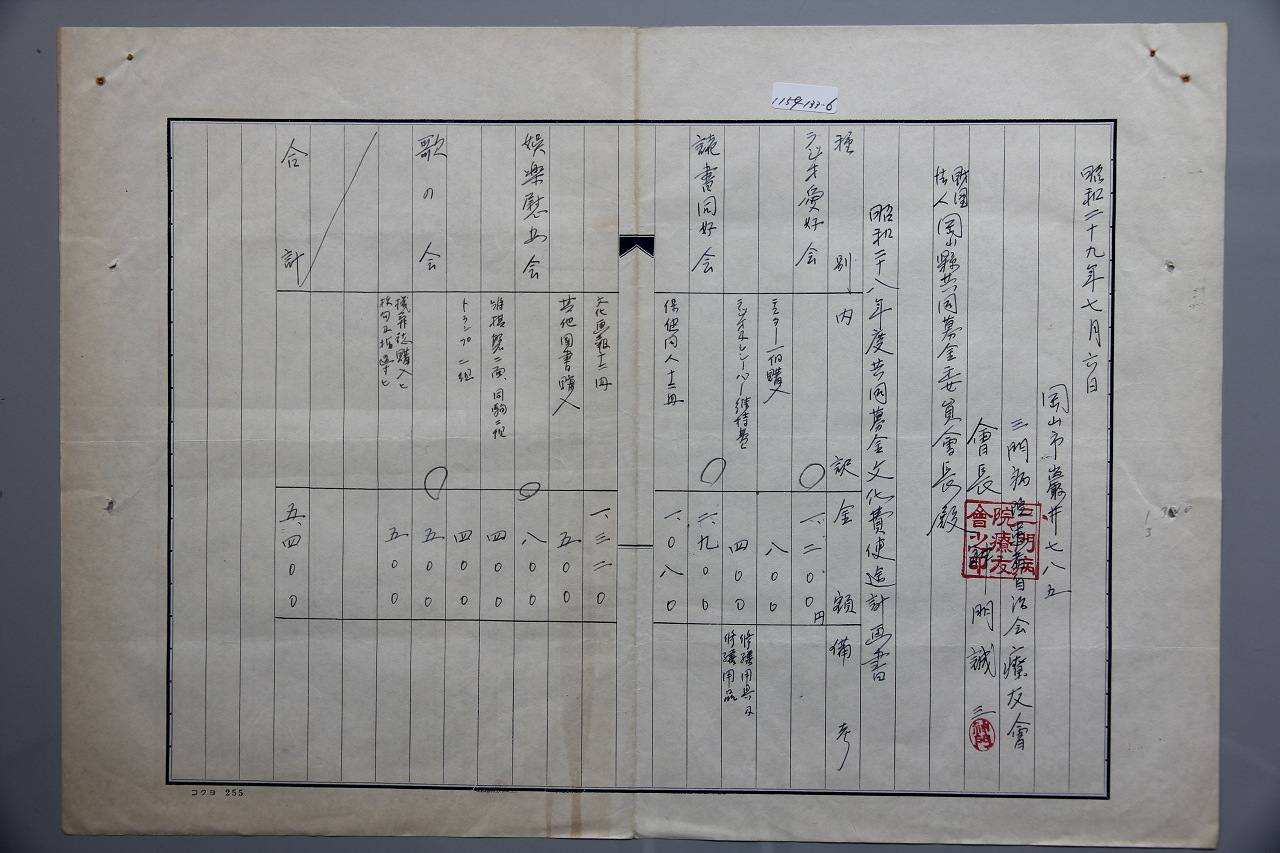 1159-133-6
昭和二十九年七月六日
岡山市巌井七八五
三門病院患者自治会療友會
會長 神門誠三
三門病院療友會之印
神門
財団法人 岡山縣共同募金委員會長殿
昭和二十八年度共同募金文化費使途計画書
種別 内訳 金額 備考
ラジオ愛好会 一、二〇〇円
テスター一個購入 八〇〇
ラジオ及レシーバー維持費 四〇〇 修繕用具及修繕用品
読書同好会 二、九〇〇
保健同人十二冊 一、〇八〇
文化画報十二冊 一、三二〇
其他図書購入 五〇〇
娯楽慰安会 八〇〇
将棋盤二面、同駒二組 四〇〇
トランプ二組 四〇〇
歌の会 五〇〇
五〇〇
合計 五、四〇〇
コクヨ 255